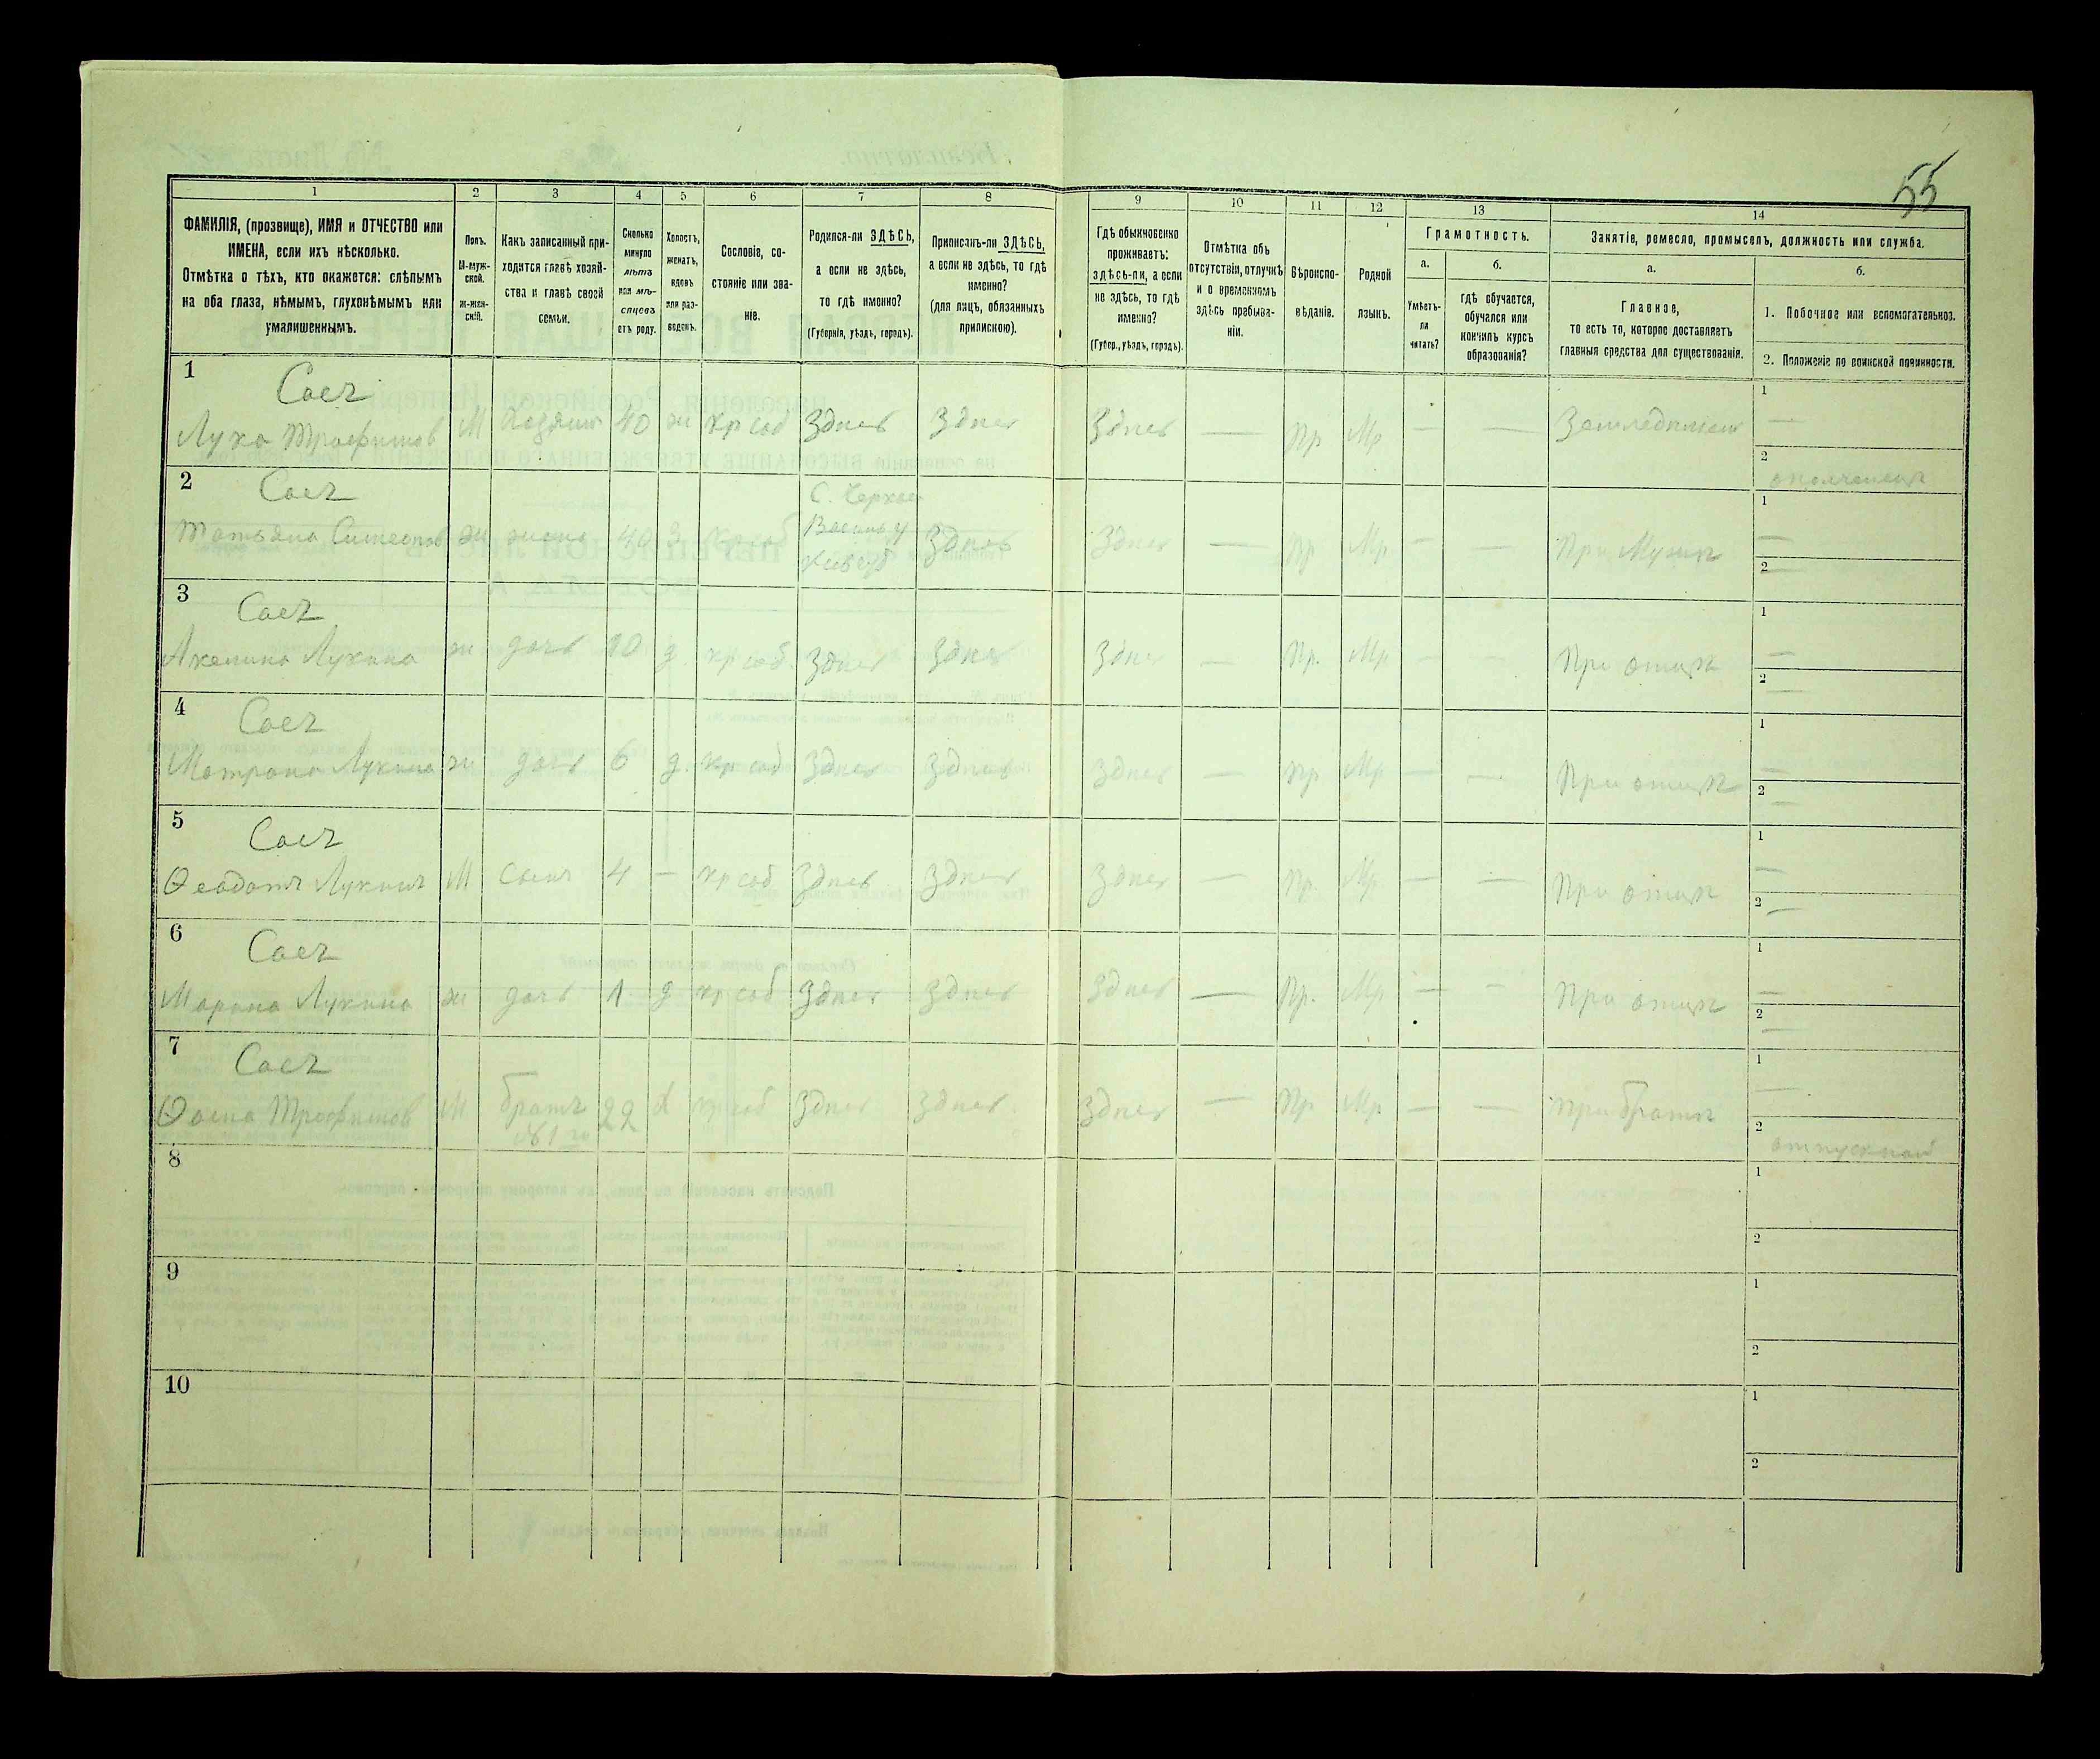 55
1
2
3
4
5
6
7
8
9
10
11
12
13
14
ФАМИЛІЯ, (прозвище), ИМЯ и ОТЧЕСТВО или
ИМЕНА, если ихъ нѣсколько.
Отмѣтка о тѣхъ, кто окажется: слѣпымъ
на оба глаза, нѣмымъ, глухонѣмымъ или
умалишеннымъ.
Полъ.
М-муж-
ской.
ж-жен-
скій.
Какъ записанный при-
ходится главѣ хозяй-
ства и главѣ своей
семьи.
Сколько
минуло
лѣтъ
или мѣ-
сяцевъ
отъ роду.
Холостъ,
женатъ,
вдовъ
или раз-
веденъ.
Сословіе, со-
стояніе или зва-
ніе.
Родился-ли ЗДѢСЬ,
а если не здѣсь,
то гдѣ именно?
(Губернія, уѣздъ, городъ).
Приписанъ-ли ЗДѢСЬ,
а если не здѣсь, то гдѣ
именно?
(для лицъ, обязанныхъ
припискою).
Гдѣ обыкновенно
проживаетъ:
здѣсь-ли, а если
не здѣсь, то гдѣ
именно?
(Губер., уѣздъ, городъ).
Отмѣтка объ
отсутствіи, отлучкѣ
и о временномъ
здѣсь пребыва-
ніи.
Вѣроиспо-
вѣданіе.
Родной
языкъ.
Грамотность.
а.
Умѣетъ-
ли
читать?
б.
гдѣ обучается,
обучался или
кончилъ курсъ
образованія?
Занятіе, ремесло, промыселъ, должность или служба.
а.
Главное,
то есть то, которое доставляетъ
главныя средства для существованія.
б.
1. Побочное или вспомогательное.
2. Положеніе по воинской повинности.
1 Саег
Лука Трофимов М Хозяин 40 ж кр соб Здпсь Здпсь Здпсь — Пр Мр — — Земледплием 1 —
2 ополченец
2 Саег
Татьяна Симеонов ж жена 40 з кр соб С. Черкас Васильк у Киев губ Здпсь Здпсь — Пр Мр — — При Мужп 1 —
2 —
3 Саег
Акелина Лукина ж дочь 10 д. кр соб. Здпсь Здпсь Здпсь — Пр. Мр — — При отцп 1 —
2 —
4 Саег
Матрона Лукина ж дочь 6 д. кр соб Здпсь Здпсь Здпсь — Пр Мр — — При отцп 1 —
2 —
5 Саег
Ѳеодотъ Лукинъ М сынъ 4 — кр соб Здпсь Здпсь Здпсь — Пр. Мр — — При отцп 1 —
2 —
6 Саег
Марина Лукина ж дочь 1. д кр соб Здпсь Здпсь Здпсь — Пр. Мр — — При отцп 1 —
2 —
7 Саег
Ѳома Трофимов М братъ №1го 22 х кр соб Здпсь Здпсь. Здпсь — Пр Мр — — При братп 1 —
2 отпускной
8
1
2
9
1
2
10
1
2